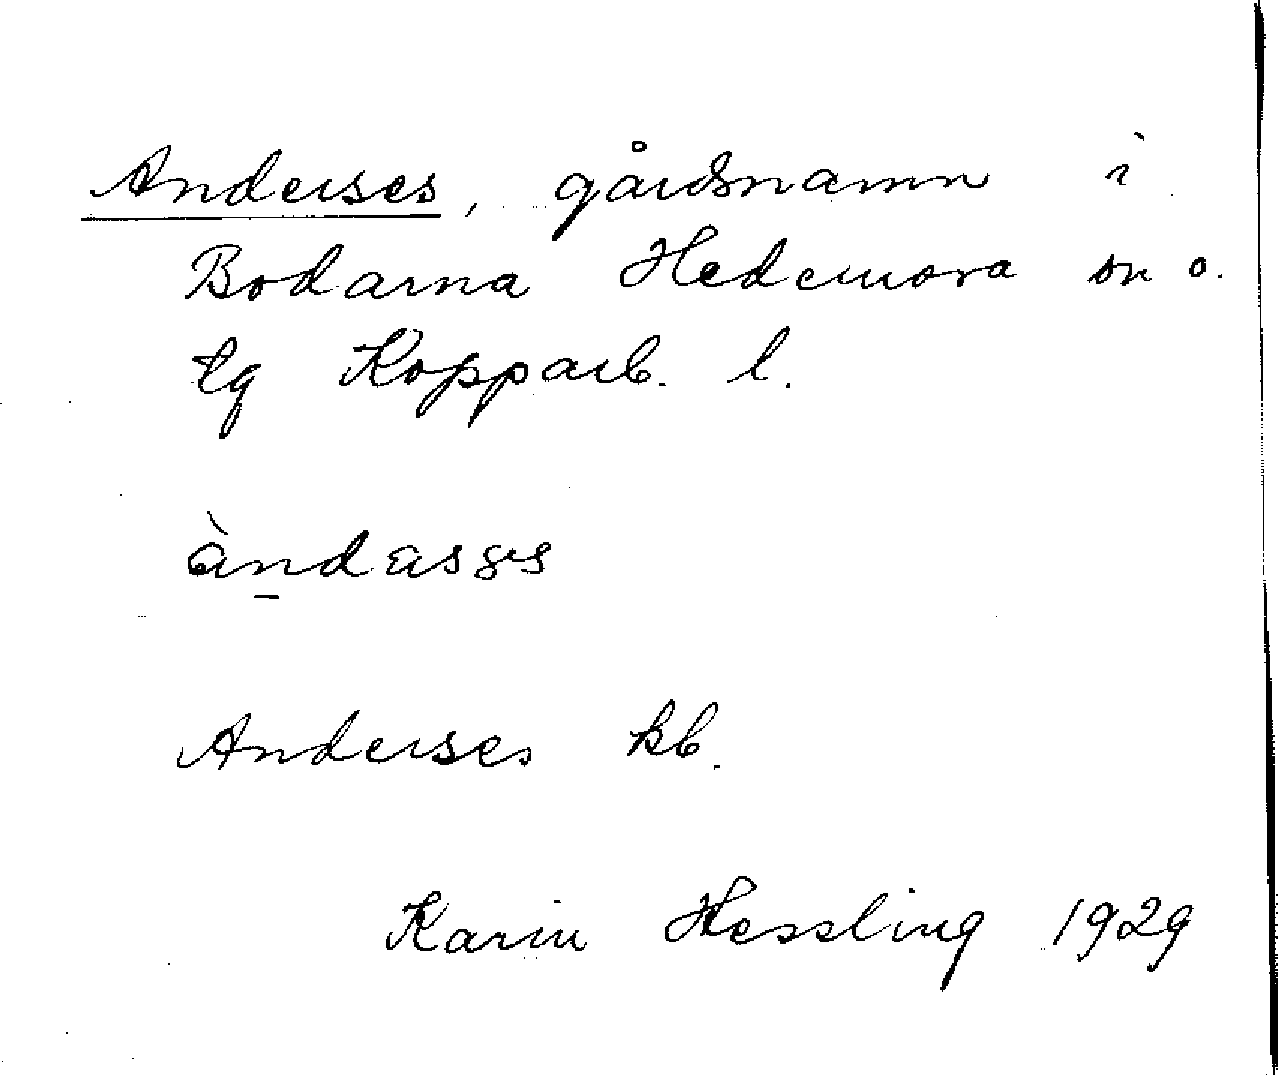 Anderses, gårdsnamn i
Bodarna Hedemora sn o.
tg Kopparb. l.
àndasses
Anderses kb.
Karin Hessling 1929